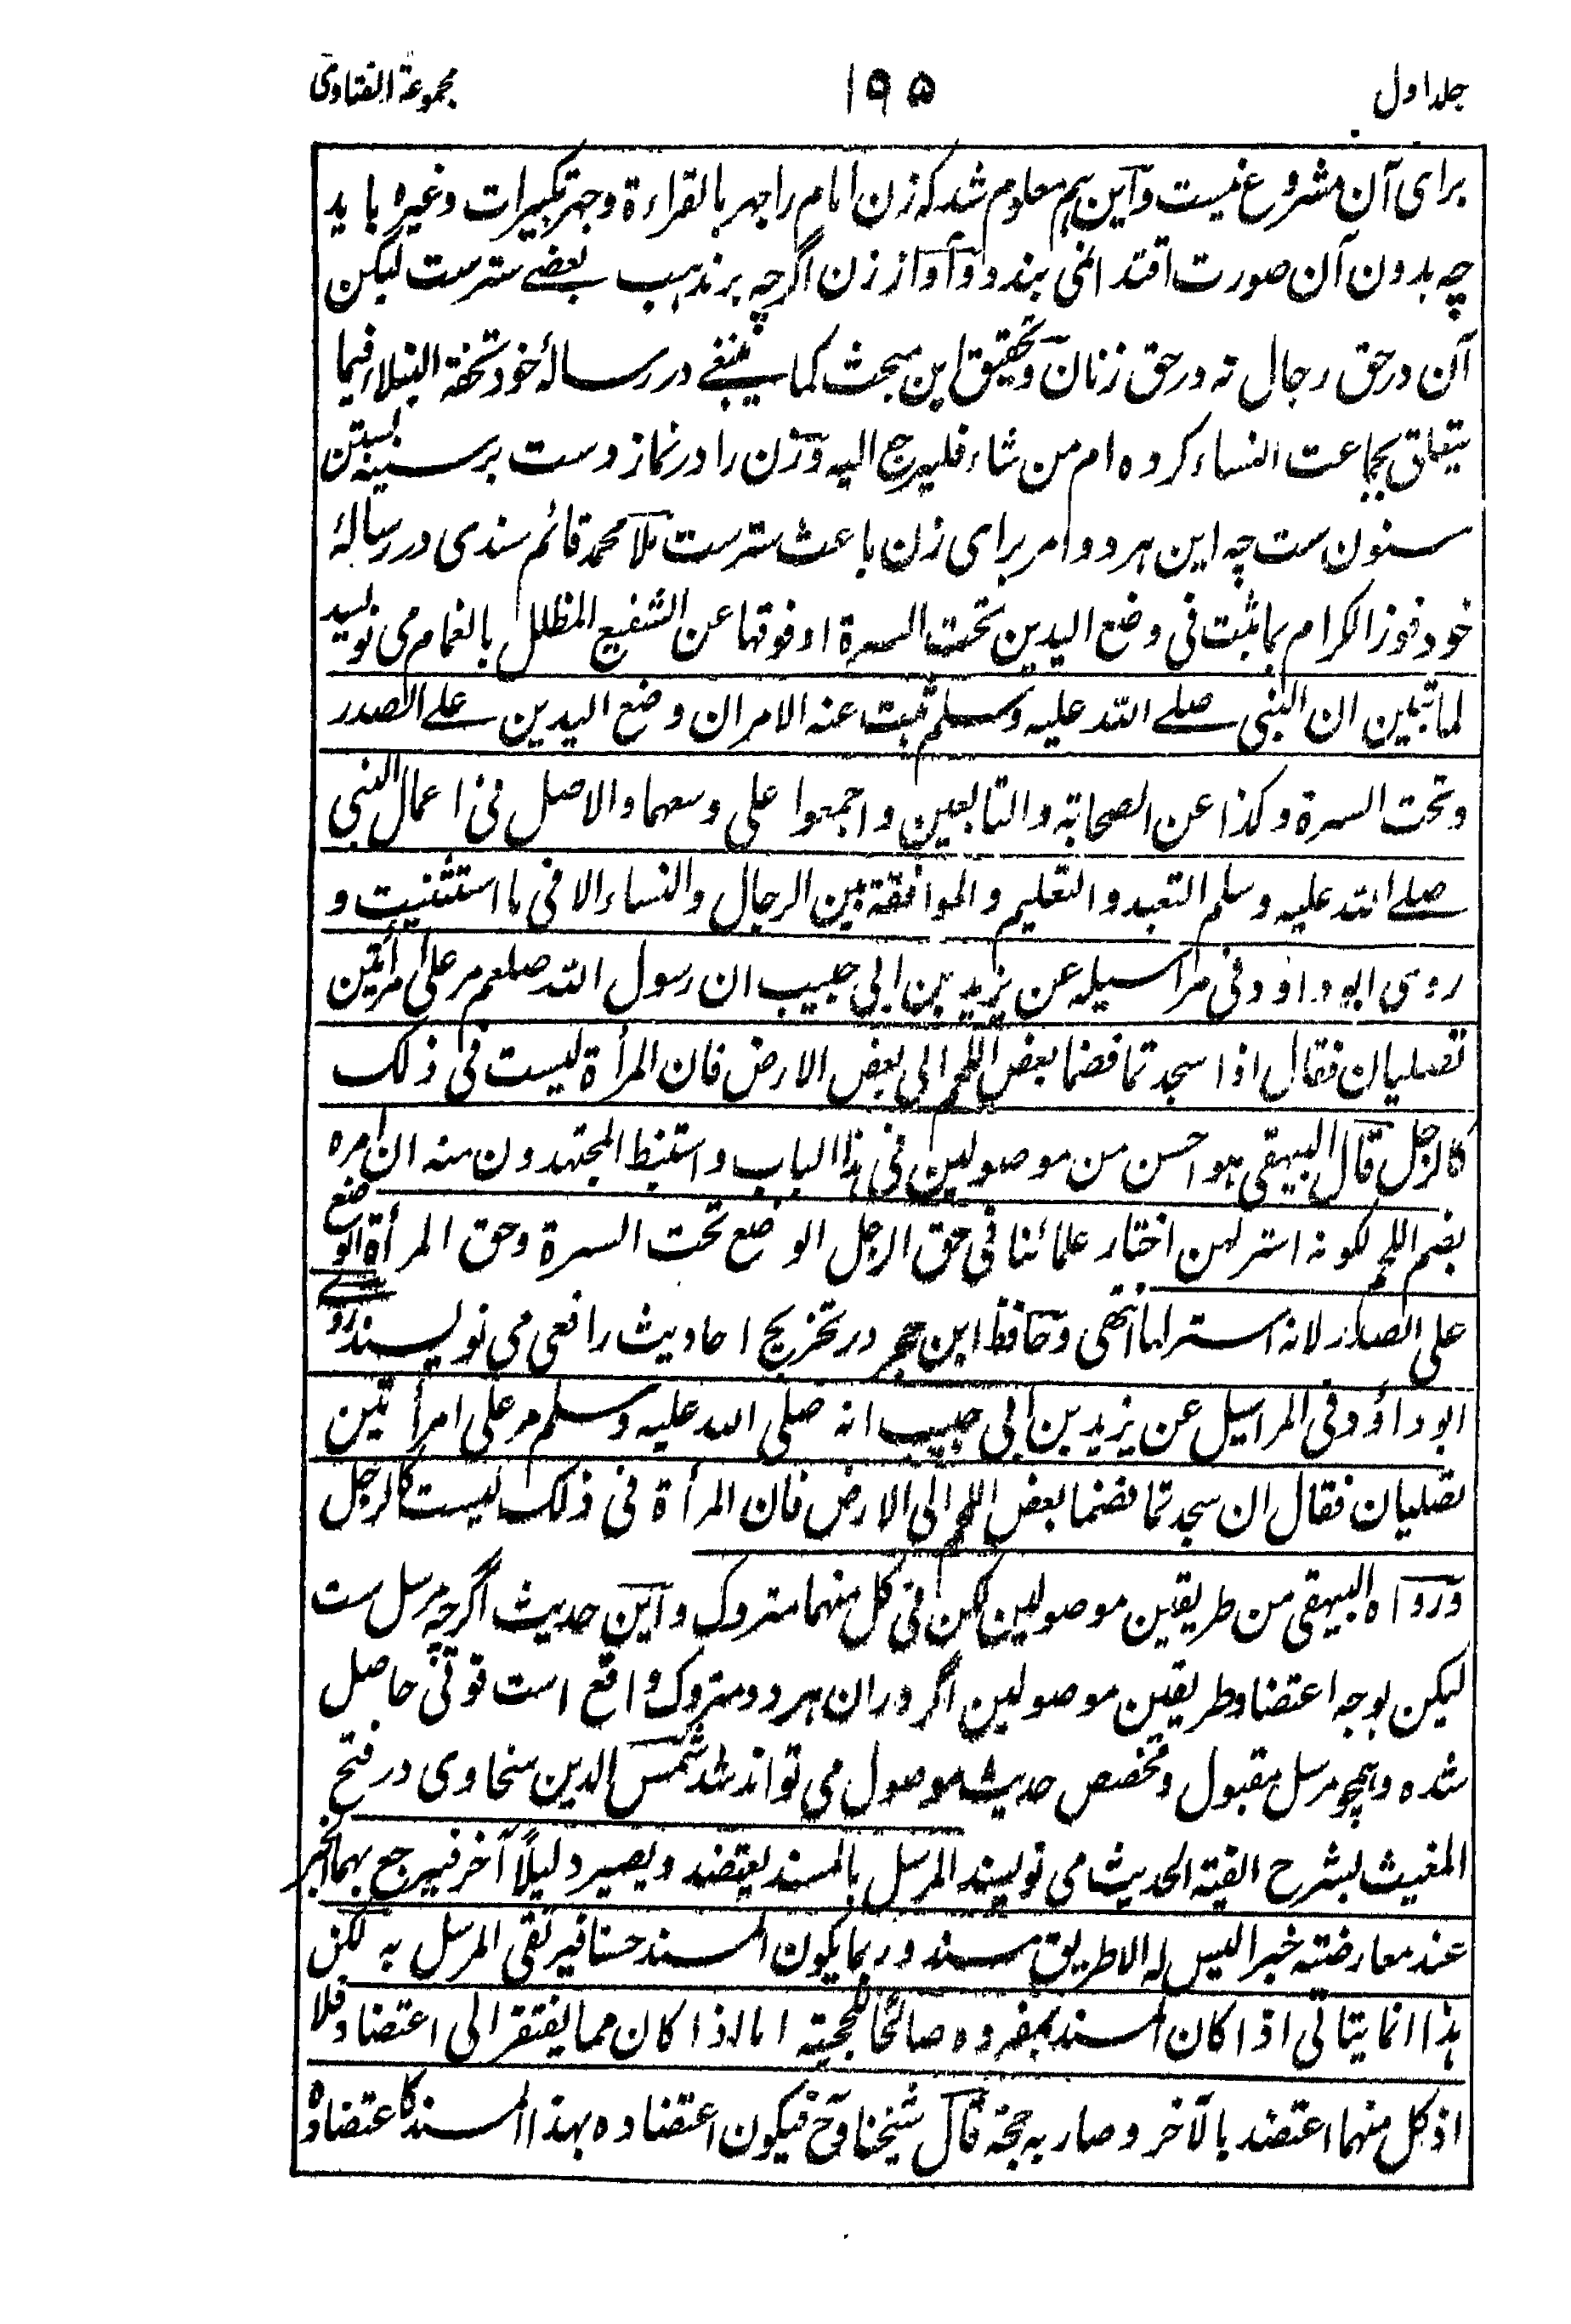 جلد اول ۱۹۵ مجموعۃ الفتاوی
برای آن مشروع نیست و این ہم معلوم شد کہ زن امام را جہر بالقراءۃ و جہر تکبیرات وغیرہ باید
چہ بدون آن صورت اقتدا نمی بندد و آواز زن اگرچہ بر مذہب بعضے ستر ست لیکن
آن در حق رجال نہ در حق زنان و تحقیق این مبحث کما ینبغے در رسالۂ خود تحفۃ النبلاء فیما
یتعلق بجماعت النساء کردہ ام من شاء فلیرجع الیہ و زن را در نماز دست بر سینہ بستن
مسنون ست چہ این ہر دو امر برای زن باعث ستر ست ملا محمد قائم سندی در رسالۂ
خود فوز الکرام بما ثبت فی وضع الیدین تحت السرۃ او فوقہا عن الشفیع المظلل بالغمام می نویسد
لما تبین ان النبی صلے اللہ علیہ وسلم ثبت عنہ الامران وضع الیدین علے الصدر
وتحت السرۃ وکذا عن الصحابۃ والتابعین واجمعوا علی وسعہما والاصل فی اعمال النبی
صلے اللہ علیہ وسلم التعبد والتعلیم والموافقۃ بین الرجال والنساء الا فی ما استثنیت و
روی ابو داود فی مراسیلہ عن یزید بن ابی حبیب ان رسول اللہ صلعم مر علی امرأتین
تصلیان فقال اذا سجدتما فضما بعض اللحم الی بعض الارض فان المرأۃ لیست فی ذلک
کالرجل قال البیہقی ہو احسن من موصولین فی ہذا الباب واستنبط المجتہدون منہ ان امرہ
بضم اللحم لکونہ استر لہن اختار علمائنا فی حق الرجل الوضع تحت السرۃ وحق المرأۃ الوضع
علی الصدر لانہ استر لہا انتہی و حافظ ابن حجر در تخریج احادیث رافعی می نویسد روے
ابو داؤد فی المراسیل عن یزید بن ابی حبیب انہ صلی اللہ علیہ وسلم مر علی امرأتین
تصلیان فقال ان سجدتما فضما بعض اللحم الی الارض فان المرأۃ فی ذلک لیست کالرجل
ورواہ البیہقی من طریقین موصولین لکن فی کل منہما متروک و این حدیث اگرچہ مرسل ست
لیکن بوجہ اعتضاد طریقین موصولین اگر در ان ہر دو متروک واقع است قوتی حاصل
شدہ و ہمچو مرسل مقبول و مخصص حدیث موصول می تواند شد شمس الدین سخاوی در فتح
المغیث بشرح الفیۃ الحدیث می نویسند المرسل بالمسند یعتضد ویصیر دلیلاً آخر فیرجع بہما الخبر
عند معارضتہ خبرا لیس لہ الا طریق مسند و ربما یکون المسند حسنا فیرتقی المرسل بہ لکن
ہذا انما یتاتی اذا کان المسند بمفردہ صالحا للحجیۃ اما اذا کان مما یفتقر الی اعتضاد فلا
اذ کل منہما اعتضد بالآخر وصار بہ حجۃ قال شیخنا وح فیکون اعتضادہ بہذا المسند کاعتضادہ